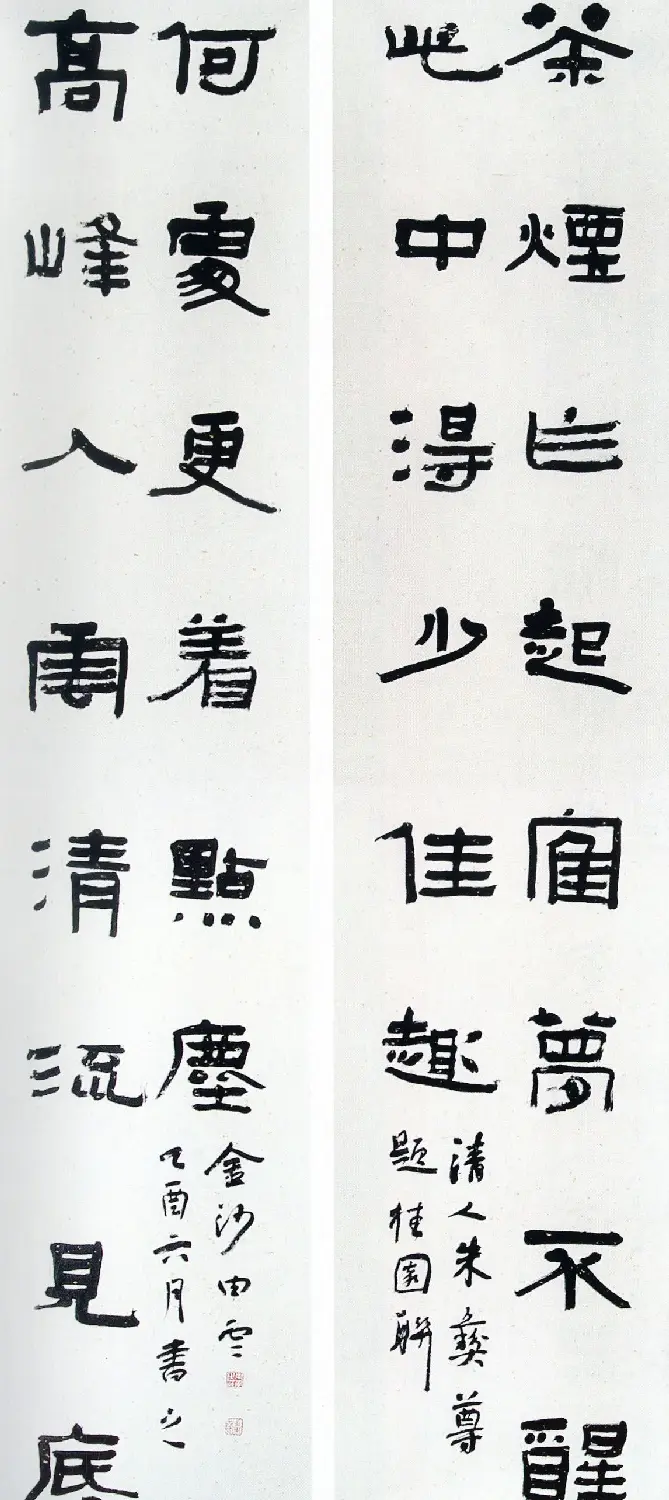 茶煙乍起寉夢不醒
此中得少佳趣
清人朱彝尊
題桂園聯
高峰入雲清流見底
何處更着點塵
金沙
乙酉六月書之